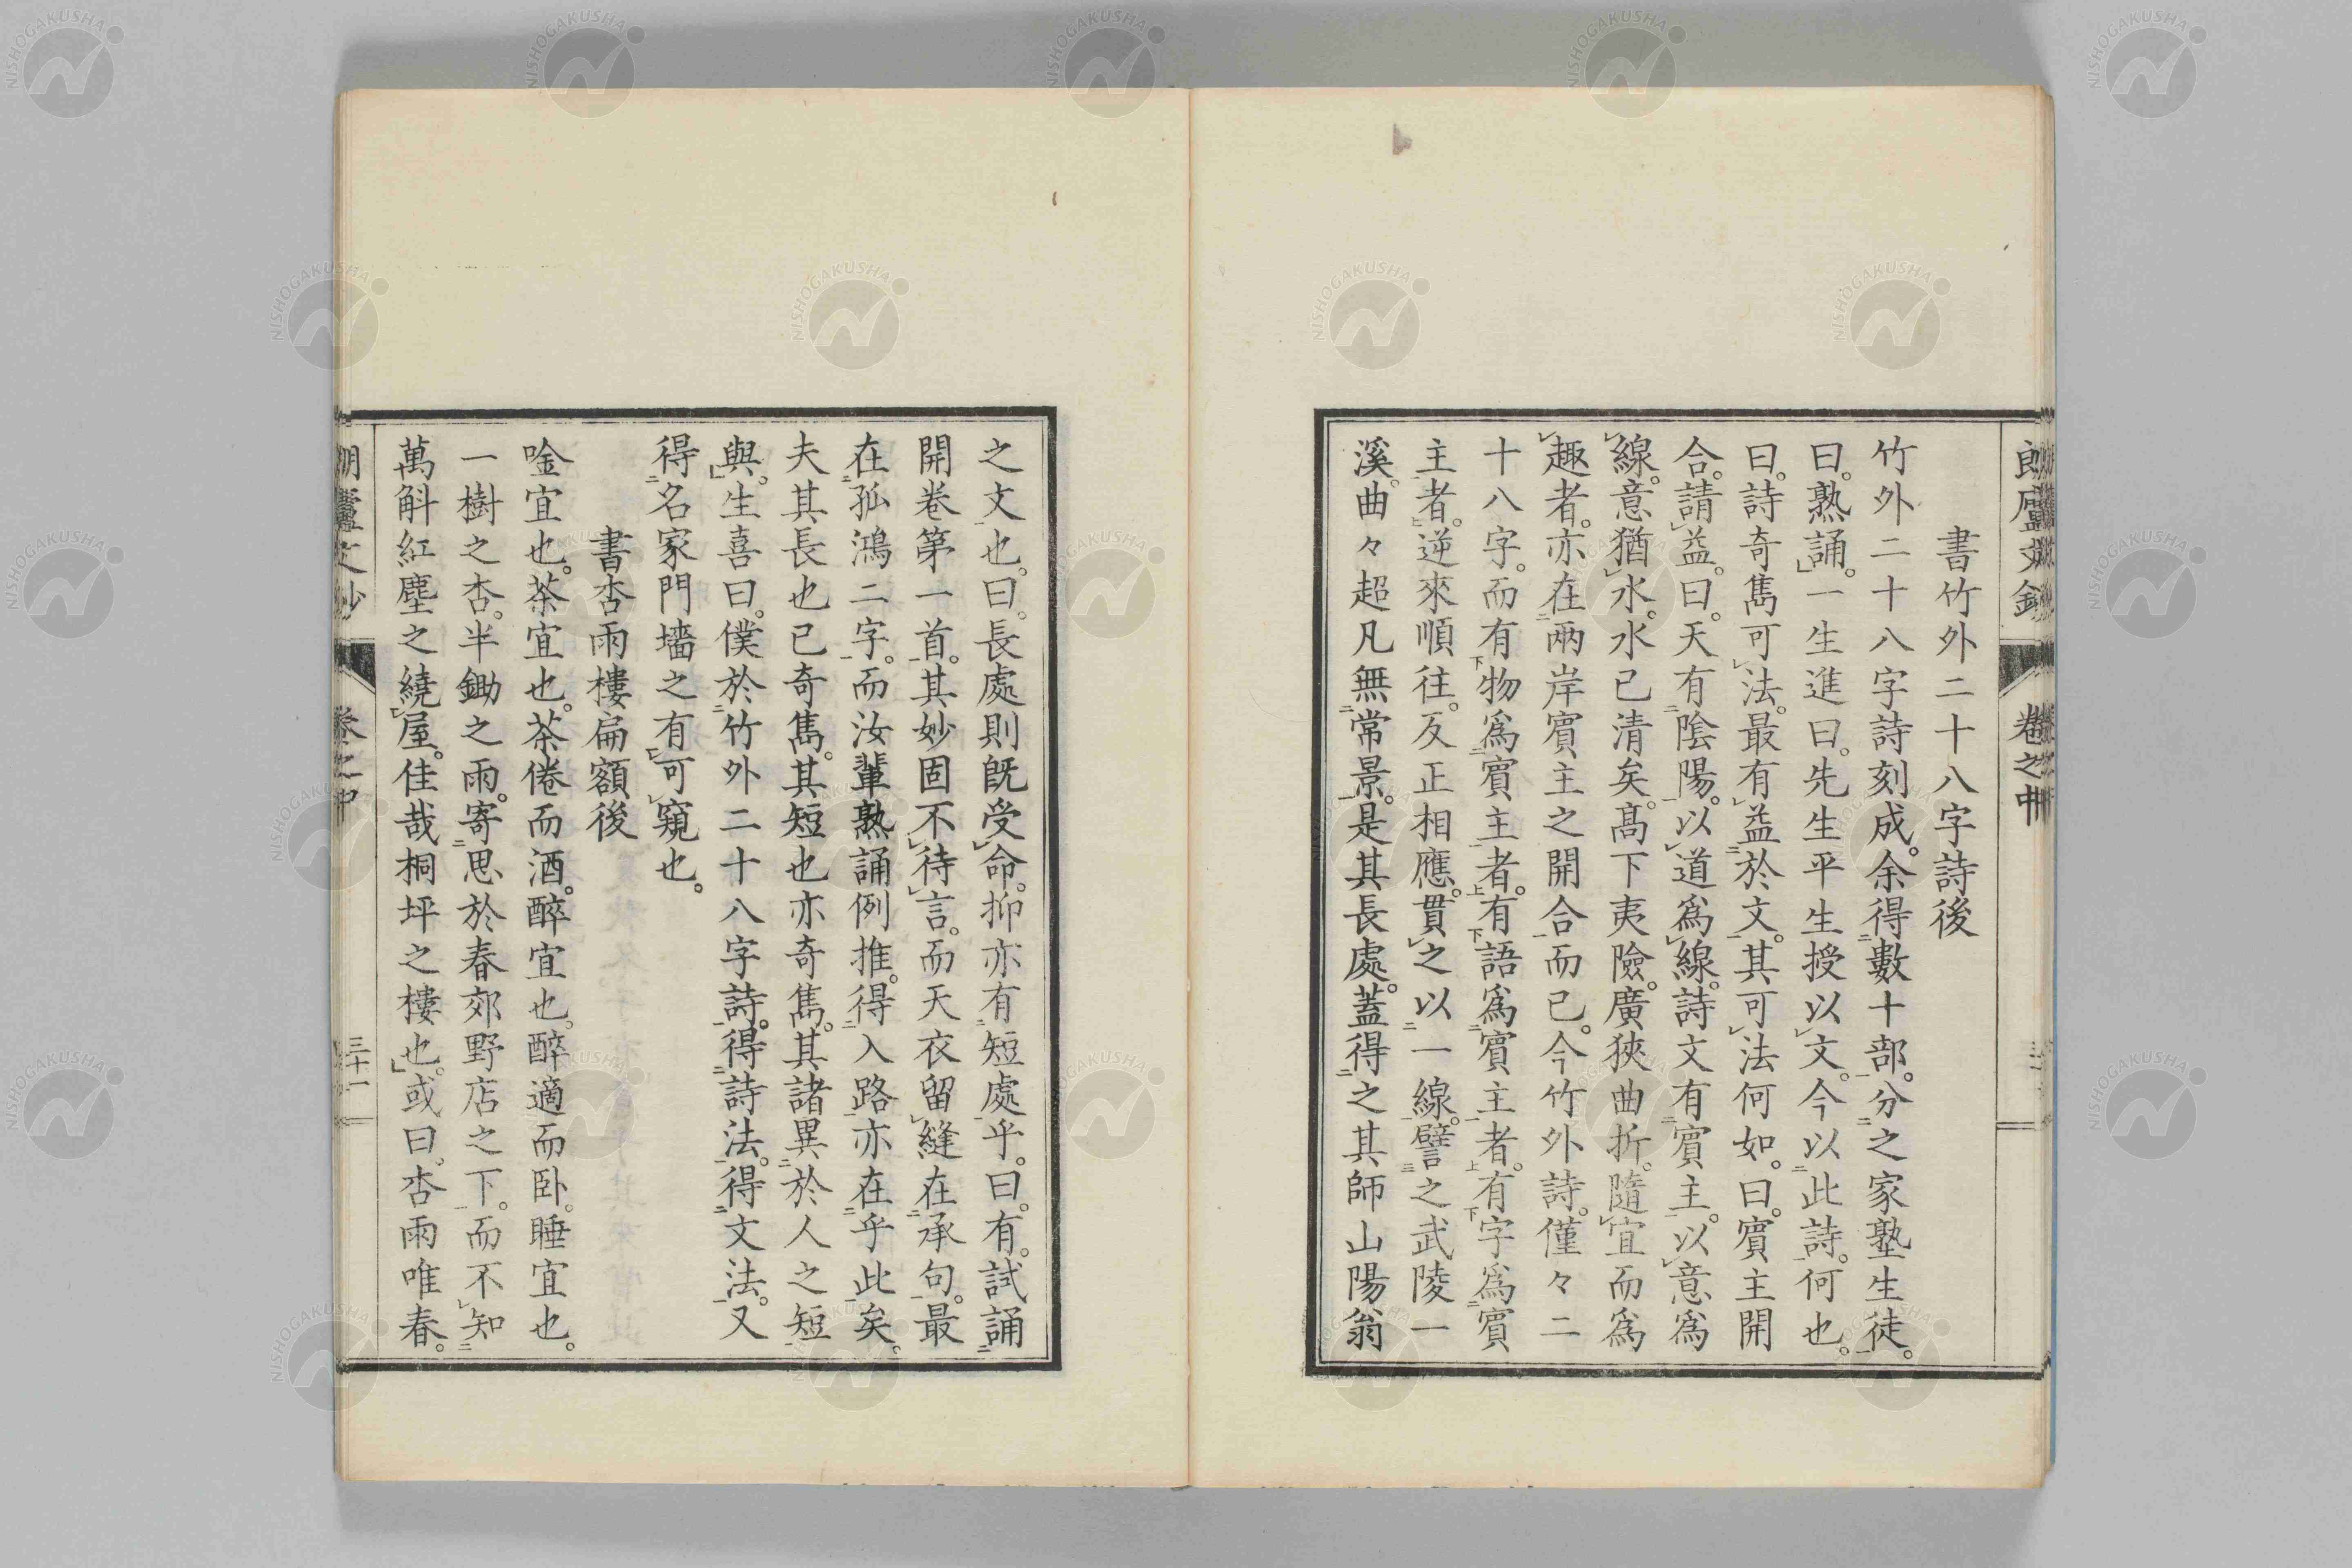 朗廬文鈔 卷之中
書竹外二十八字詩後
竹外二十八字詩刻成。余得數十部。分之家塾生徒。
曰。熟誦。一生進曰。先生平生授以文。今以此詩。何也。
曰。詩奇雋可法。最有益於文。其可法何如。曰。賓主開
合。請益。曰。天有陰陽。以道爲線。詩文有賓主。以意爲
線。意猶水。水已清矣。高下夷險。廣狹曲折。隨宜而爲
趣者。亦在兩岸賓主之開合而已。今竹外詩。僅々二
十八字。而有物爲賓主者。有語爲賓主者。有字爲賓
主者。逆來順往。反正相應。貫之以一線。譬之武陵一
溪。曲々超凡無常景。是其長處。蓋得之其師山陽翁
之文也。曰。長處則旣受命。抑亦有短處乎。曰。有。試誦
開卷第一首。其妙固不待言。而天衣留縫在承句。最
在孤鴻二字。而汝輩熟誦例推。得入路亦在乎此矣。
夫其長也已奇雋。其短也亦奇雋。其諸異於人之短
與。生喜曰。僕於竹外二十八字詩。得詩法。得文法。又
得名家門墻之有可窺也。
書杏雨樓扁額後
唫宜也。茶宜也。茶倦而酒。醉宜也。醉適而臥。睡宜也。
一樹之杏。半鋤之雨。寄思於春郊野店之下。而不知
萬斛紅塵之繞屋。佳哉桐坪之樓也。或曰。杏雨唯春。
朗廬文鈔 卷之中 三十一
NISHOGAKUSHA